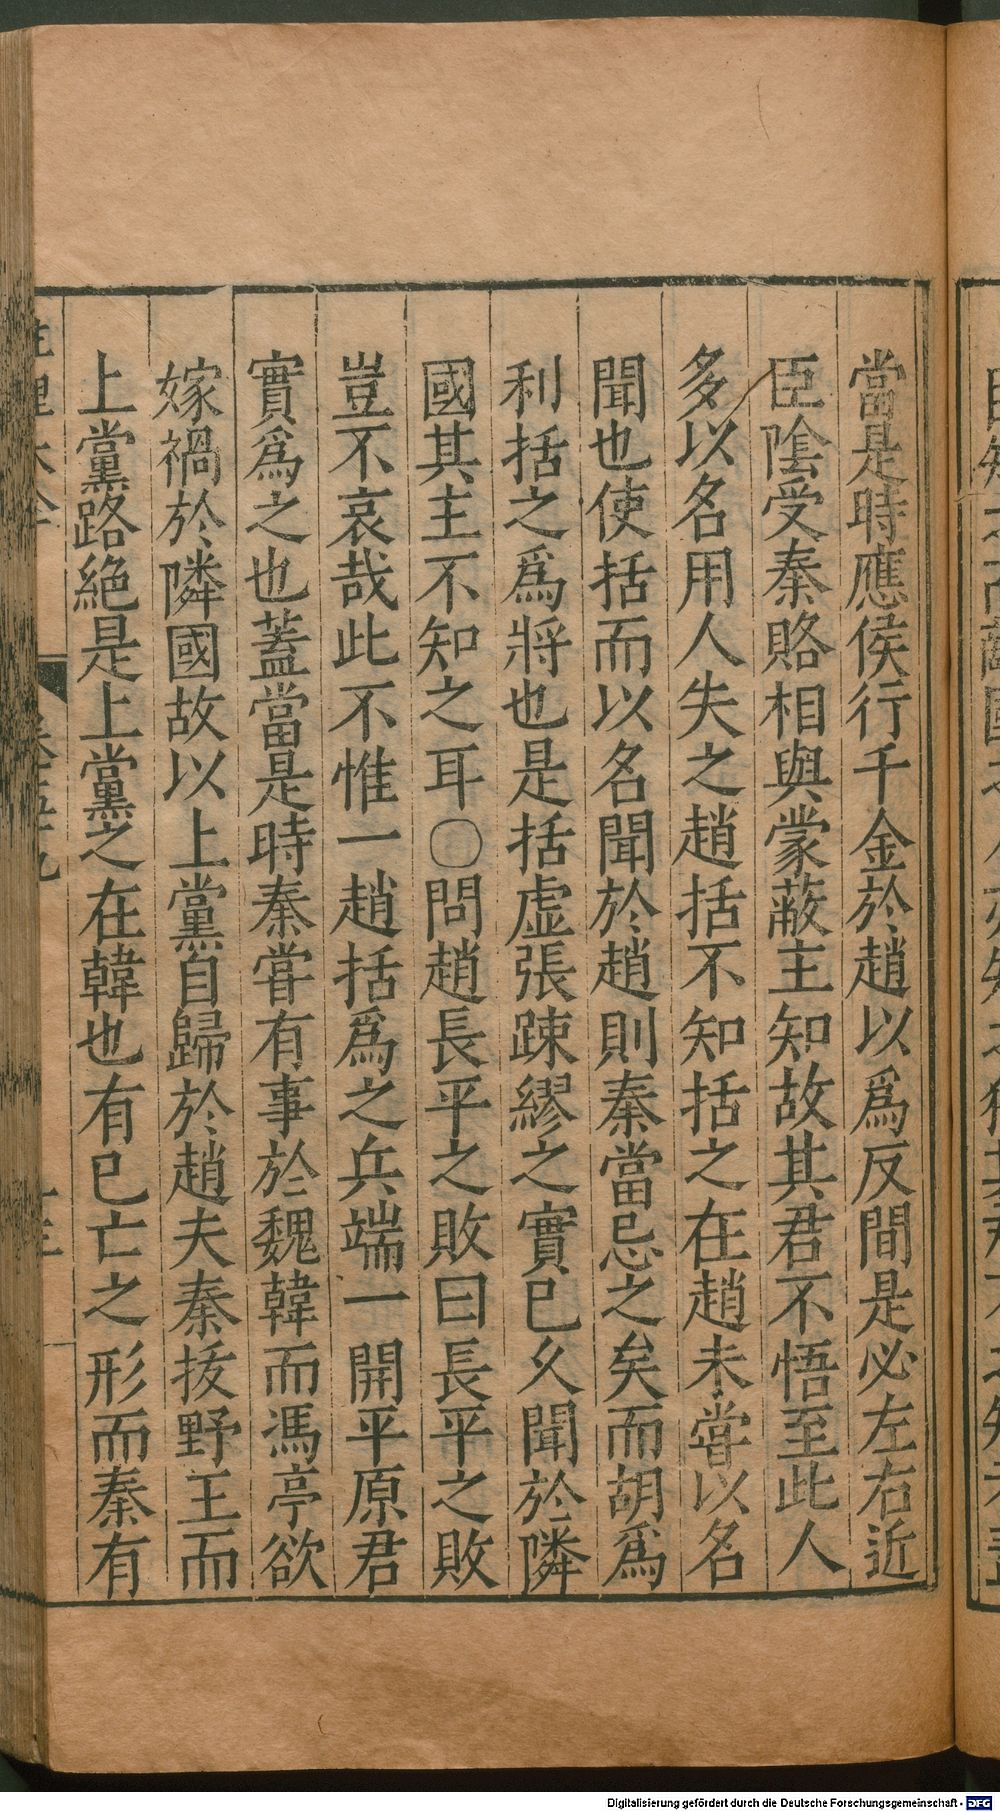 當是時應侯行千金於趙以爲反間是必左右近
臣陰受秦賂相與蒙蔽主知故其君不悟至此人
多以名用人失之趙括不知括之在趙未嘗以名
聞也使括而以名聞於趙則秦當忌之矣而胡爲
利括之爲將也是括虛張踈繆之實已久聞於隣
國其主不知之耳○問趙長平之敗曰長平之敗
豈不哀哉此不惟一趙括爲之兵端一開平原君
實爲之也蓋當是時秦嘗有事於魏韓而馮亭欲
嫁禍於隣國故以上黨自歸於趙夫秦拔野王而
上黨路絶是上黨之在韓也有已亡之形而秦有
Digitalisierung gefördert durch die Deutsche Forschungsgemeinschaft - DFG